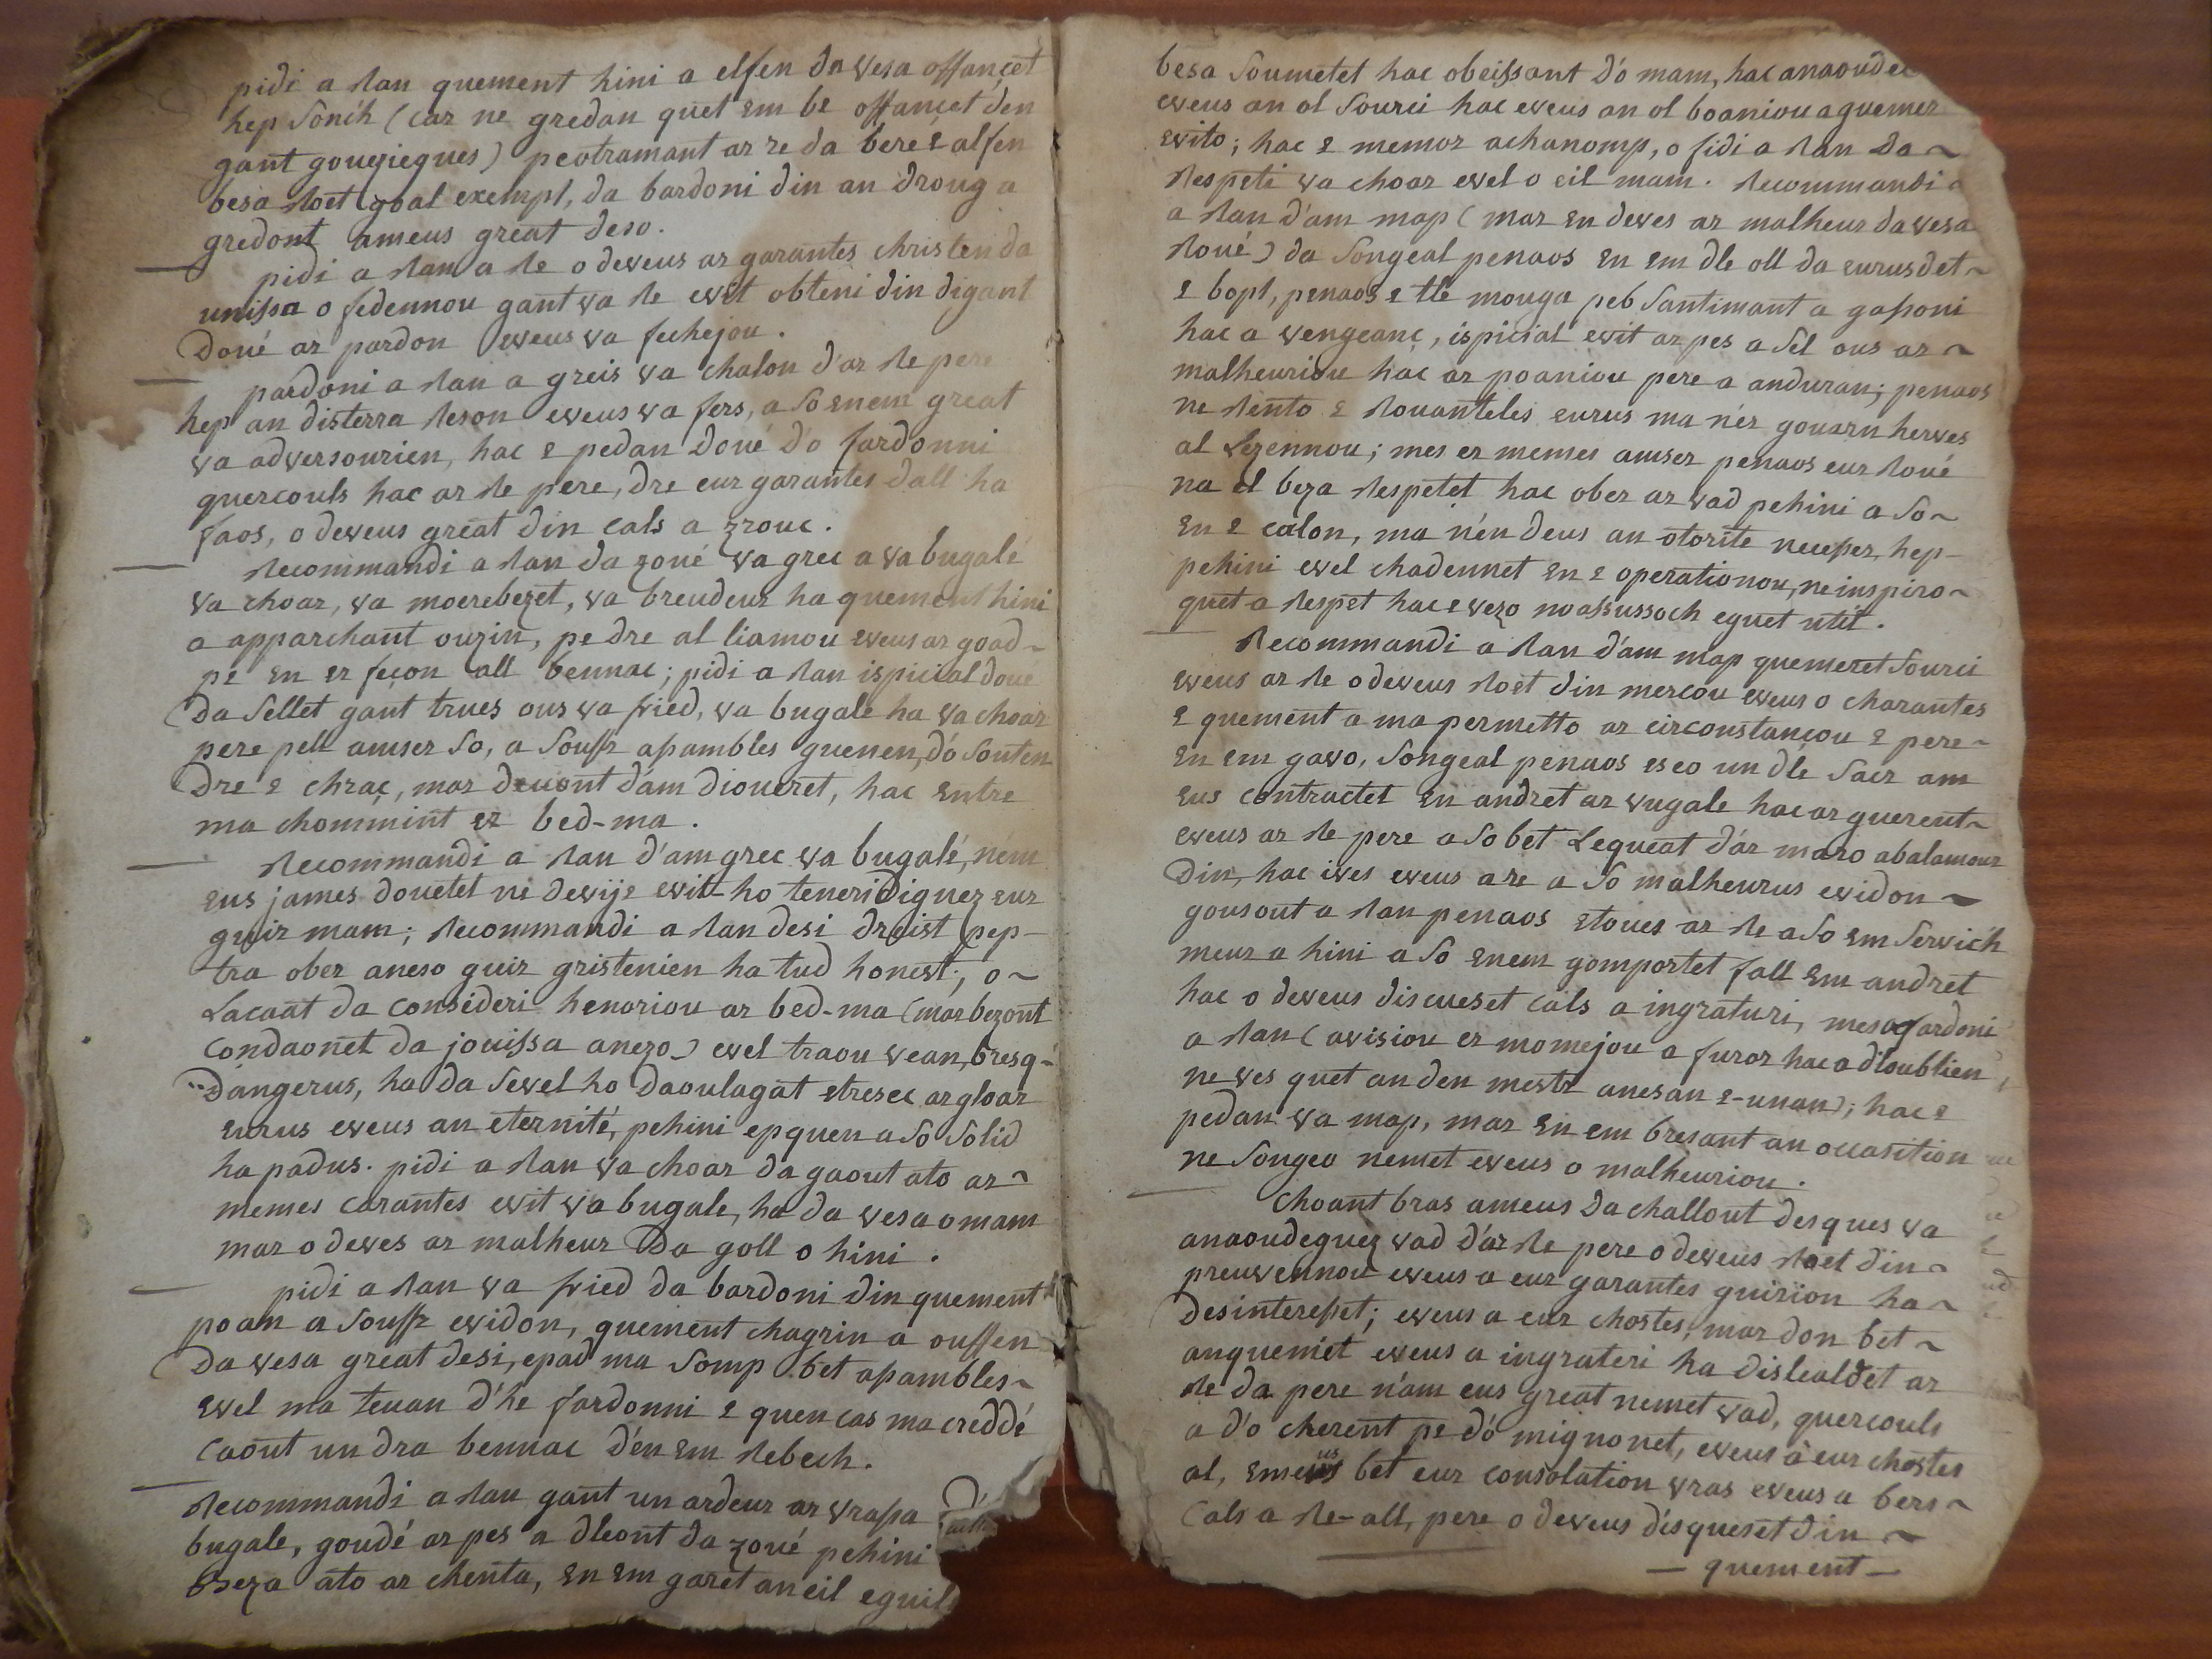 pidi a ran quement hini a elfen da vesa offancet
hep sonch (car ne gredan quet em be offancet den
gant gouyiegues) peotramant ar re da bere e alfen
besa roet goal exempl, da bardoni din an droug a
gredont ameus great deso.
pidi a ran a re o deveus ar garantes christen da
unissa o fedennou gant va re evit obteni din digant
Doué ar pardon eveus va fechejou.
pardoni a ran a greis va chalon d'ar re pere
hep an disterra reson eveus va fers, a so enem great
va adversourien, hac e pedan Doué d'o fardonni
quercouls hac ar re pere, dre eur garantes dall ha
faos, o deveus great din cals a zrouc.
recommandi a ran da zoué va grec a va bugalé
va choar, va moerebezet, va breudeur ha quement hini
a apparchant ouzin, pe dre al liamou eveus ar goad~
pe en er feçon all bennac; pidi a ran ispicial doué
Da sellet gant trues ous va fried, va bugale ha va choar
pere pell amser so, a souffr assambles guenen, d'o souten
Dre e chrac, mar deuont d'am dioueret, hac entre
ma chommint er bed-ma.
recommandi a ran d'am grec va bugalé, nem
eus james douetet ne devije evit-ho teneridiguez eur
guir mam; recommandi a ran desi dreist pep-
tra ober aneso guir gristenien ha tud honest; o~
Lacaat da consideri henoriou ar bed-ma (mar bezont
Condaonet da jouissa anezo) evel traou vean, bresq-
Dangerus, ha da sevel ho daoulagat etresec ar gloar
eurus eveus an eternité, pehini epquen a so solid
ha padus. pidi a ran va choar da gaout ato ar~
memes carantes evit va bugale, ha da vesa o mam
mar o deves ar malheur Da goll o hini.
pidi a ran va fried da bardoni din quement
poan a souffr evidon, quement chagrin a ouffen
Da vesa great desi, epad ma somp bet assambles~
evel ma teuan d'he fardonni e quen cas ma creddé
Caout un dra bennac d'en em rebech.
recommandi a ran gant un ardeur ar vrassa D'
bugale, goudé ar pes a dleont da zoué pehini
Bbeza ato ar chenta, en em garet an eil eguil
besa soumetet hac obeissant d'o mam, hac anaoudec
eveus an ol sourci hac eveus an ol boaniou a guemer
evito; hac e memor achanomp, o fidi a ran da~
respeti va choar evel o eil mam. recommandi
a ran d'am map (mar en deves ar malheur da vesa
roué) da songeal penaos en em dle oll da eurusdet~
e bopl, penaos e tle mouga peb santimant a gassoni
hac a vengeanc, ispicial evit ar pes a sel ous ar~
malheuriou hac ar poaniou pere a anduran; penaos
ne rento e rouanteles eurus ma n'er gouarn herves
al Lezennou; mes er memes amser penaos eur roué
na el beza respetet hac ober ar vad pehini a so~
en e calon, ma n'en deus an otorite necesser, hep-
pehini evel chadennet en e operationou, ne inspiro~
quet a respet hac e vezo noassussoch eguet util.
Recommandi a ran d'am map quemeret sourci
eveus ar re o deveus roet din mercou eveus o charantes
e quement a ma permetto ar circonstançou e pere~
en em gavo, songeal penaos es eo un dlé sacr am
eus contractet en andret ar vugale hac ar guerent~
eveus ar re pere a so bet Lequeat d'ar maro abalamour
Din, hac ives eveus a re a so malheurus evidon~
gousout a ran penaos etoues ar re a so em servich
meur a hini a so enem gomportet fall em andret
hac o deveus discueset cals a ingraturi, mes o fardoni
a ran (avisiou er momejou a furor hac a dloublien
ne ves quet an den mestr anesan e-unan); hac e
pedan va map, mar en em bresant an occasition
ne songeo nemet eveus o malheuriou.
choant bras ameus da challout desques va
anaoudeguez vad d'ar re pere o deveus roet din~
preuvennou eveus a eur garantes guirion ha~
Desinteresset; eveus a eur chostes, mar don bet~
anquenict eveus a ingrateri ha disléaldet ar
re da pere n'am eus great nemet vad, quercouls
a d'o cherent pe d'o mignonet, eveus a eur chostes
al, emeus bet eur consolation vras eveus a bers~
Cals a re-all, pere o deveus disqueset din~
— quement —